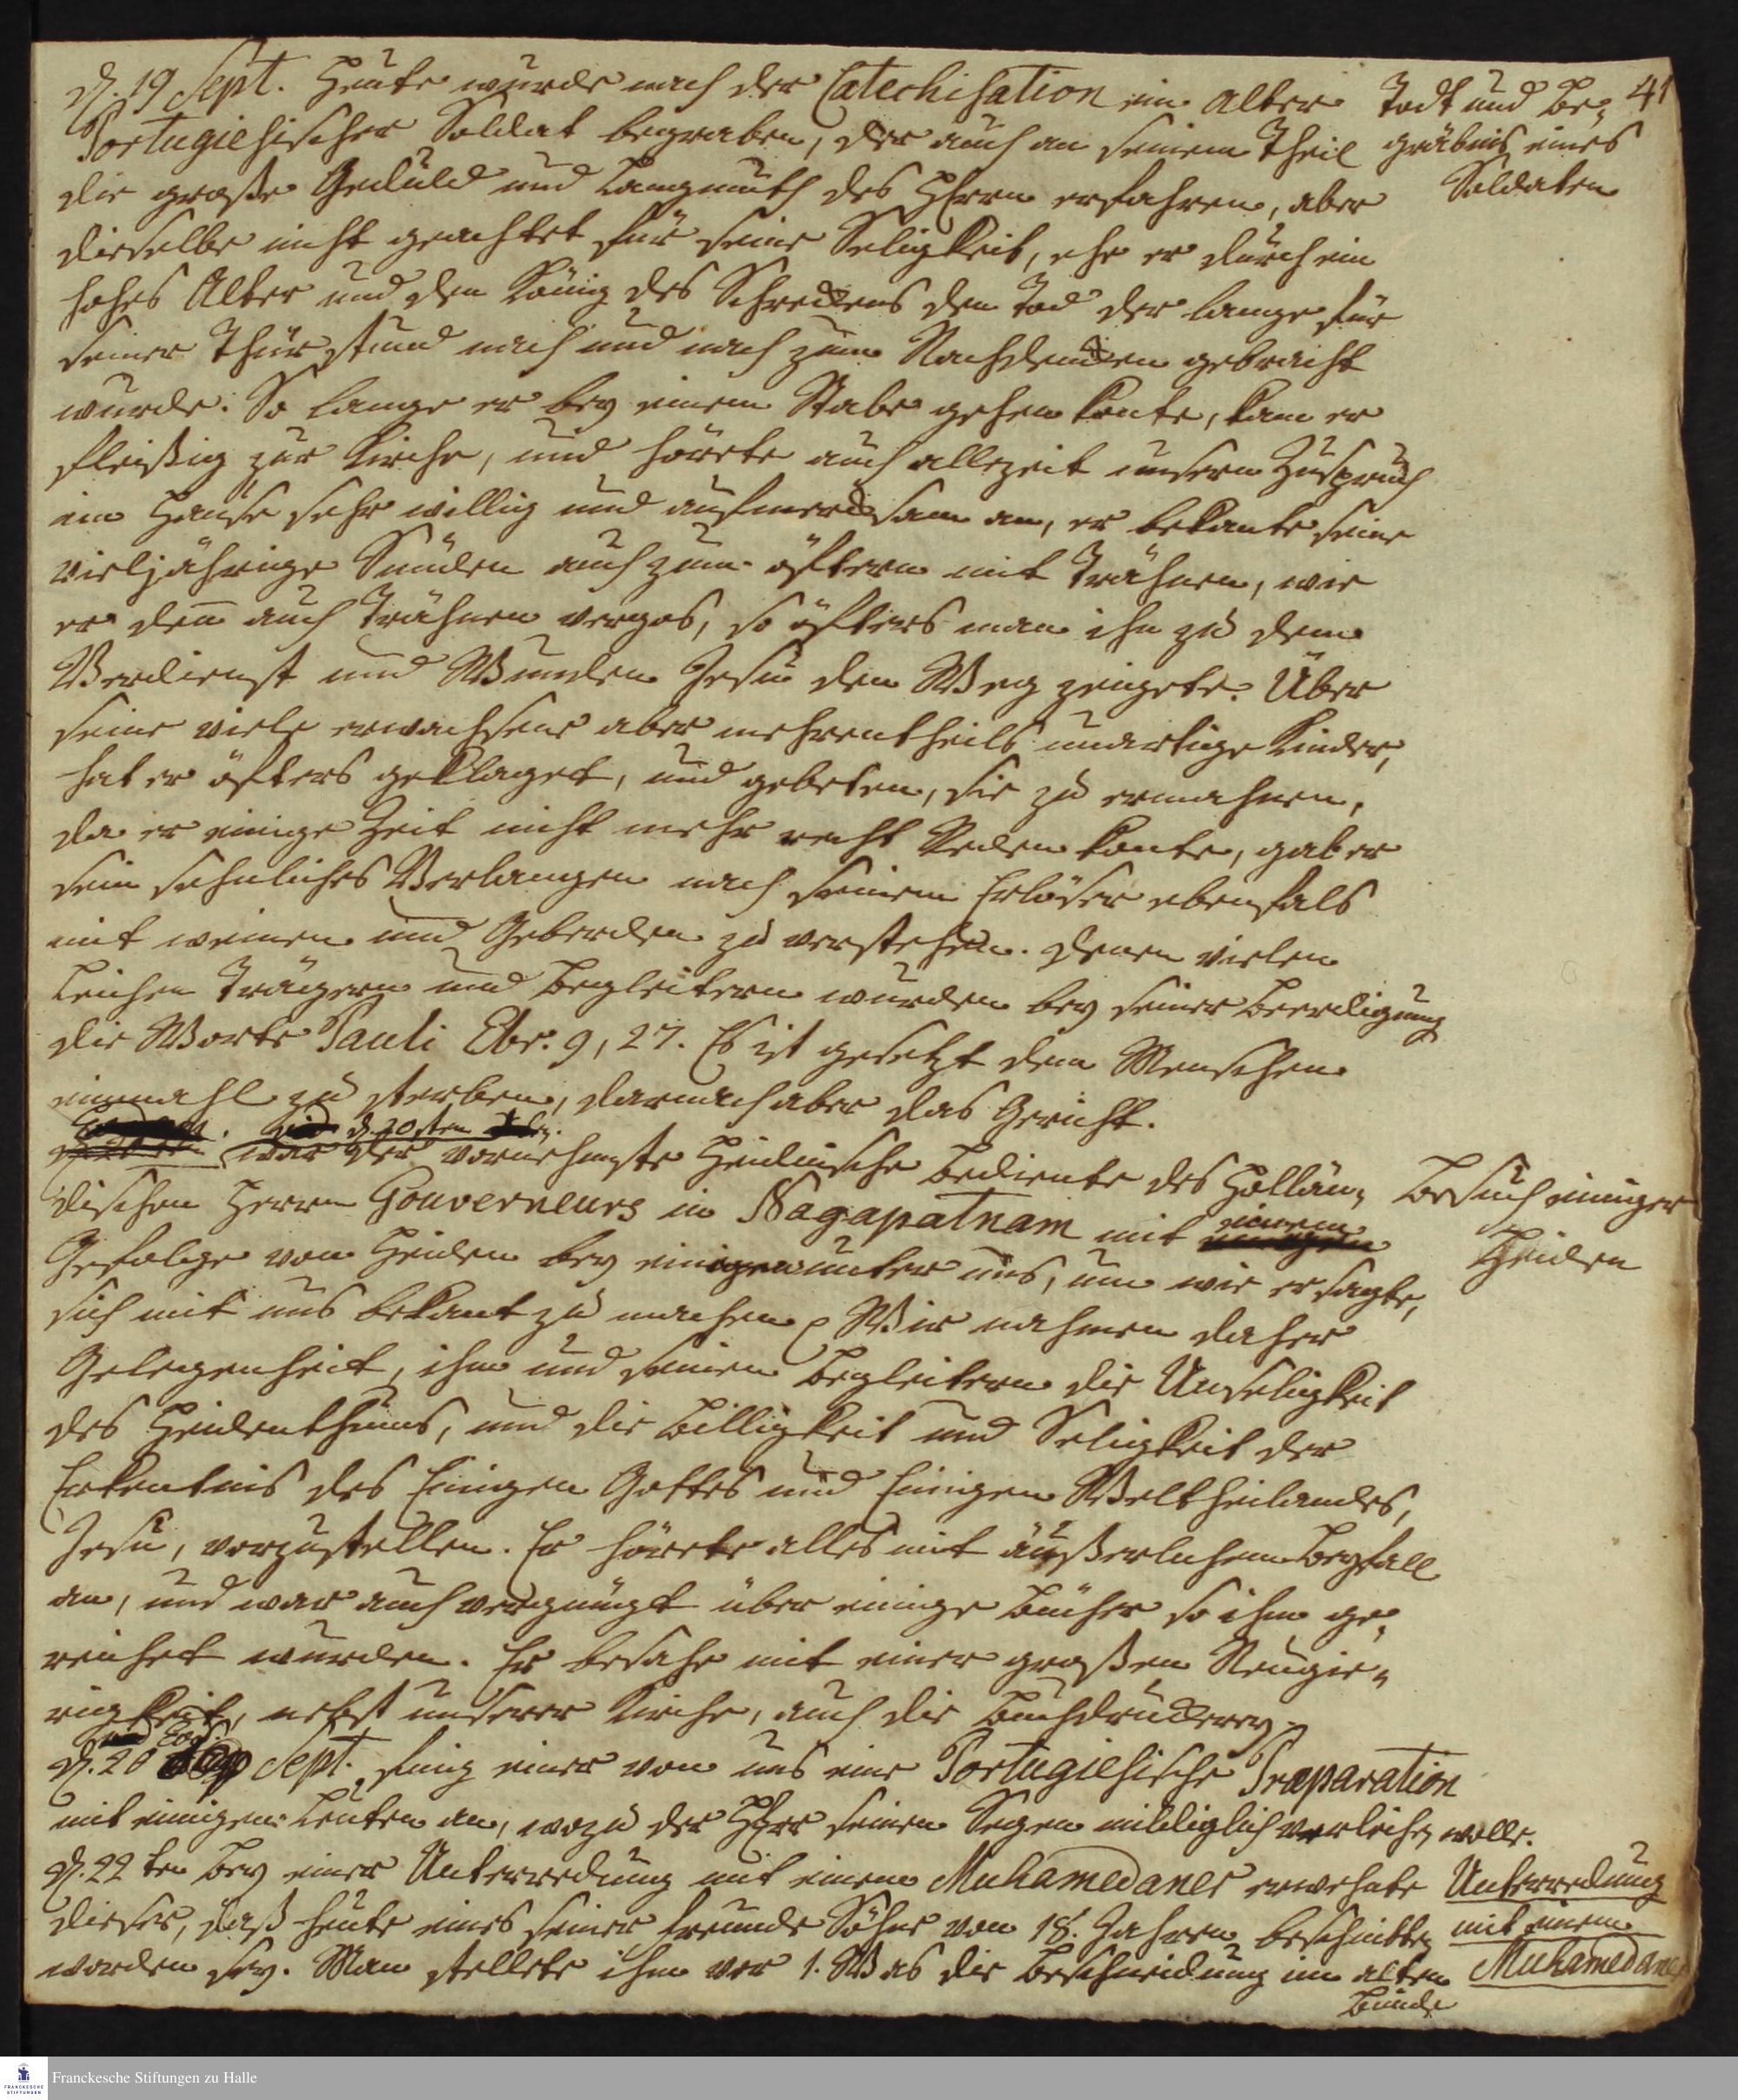 41
d. 19 Sept. Heute wurde nach der Catechisation ein alter
Portugiesischer Soldat begraben, der auch an seinem Theil
die große Gedult und Langmuth des HErrn erfahren, aber
dieselbe nicht geachtet für seine Seligkeit, ehe er durch ein
hohes Alter und den König des Schreckens den Tod der lange für
seiner Thür stund nach und nach zum Nachdencken gebracht
wurde. So lange er bey einem Stabe gehen konte, kam er
fleißig zur Kirche, und hörete auch allezeit unsern Zuspruch
im Hause sehr willig und aufmercksam an, er bekante seine
vieljährige Sünden auch zum öftern mit Trähnen, wie
er deñ auch Trähnen vergos, so öfters man ihn zu dem
Verdienst und Wunden Jesu den Weg zeigete. Über
seine viele erwachsene aber mehrentheils unartige Kinder,
hat er öfters geklaget, und gebeten, sie zu ermahnen,
da er einige Zeit nicht mehr recht Reden konte, gab er
sein sehnliches Verlangen nach seinem Erlöser ebenfals
mit weinen und Geberden zu verstehen. Denen vielen
Leichen Trägern und Begleitern wurden bey seiner Beerdigung
die Worte Pauli Ebr. 9, 27. Es ist gesetzt dem Menschen
einmahl zu sterben, darnach aber das Gericht.
d. 20sten
war der vornehmste Heidnische Bediente des Hollän-
dischen Herrn Gouverneurs in Nagapatnam mit einem
Gefolge von Heiden bey einigen unter uns, um wie er sagte,
sich mit uns bekant zu machen. Wir nahmen daher
Gelegenheit, ihm und seinen Begleitern die Unseligkeit
des Heidenthums, und die Billigkeit und Seligkeit der
Erkentnis des Einigen Gottes und Einigen Weltheilandes,
Jesu, vorzustellen. Er hörete alles mit äußerlichem Beyfall
an, und war auch vergnügt über einige Bücher so ihm ge-
reichet wurden. Er besahe mit einer großen Neugie-
rigkeit, nebst unserer Kirche, auch die Buchdruckerey.
d. 20 Sept. fing einer von uns eine Portugiesische Præparation
mit einigen Leuten an, wozu der HErr seinen Segen mildiglich verleihen wolle.
d. 22ten Bey einer Unterredung mit einem Muhamedaner erwehnte
dieser, daß heute eines seiner Freunde Söhne von 18. Jahren beschnitten
worden sey. Man stellete ihm vor 1. Was die Beschneidung im alten
Bunde
Todt und Be-
gräbnis eines
Soldaten
Besuch einiger
Heiden
Unterredung
mit einem
Muhamedaner
Franckesche Stiftungen zu Halle
FRANCKESCHE
STIFTUNGEN